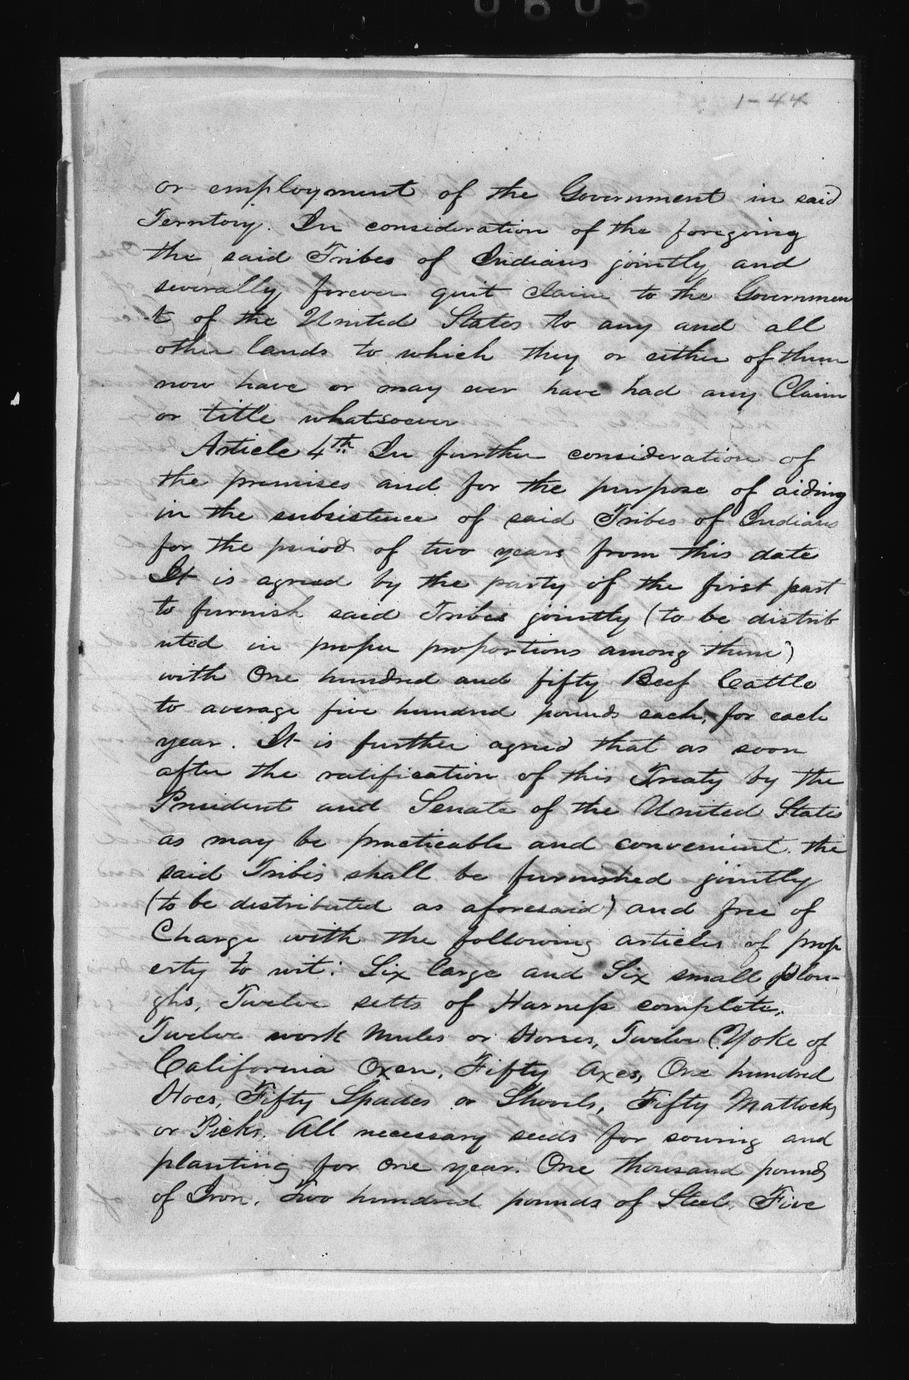 0605
1-44
or employment of the Government in said
Territory. In consideration of the foregoing
the said Tribes of Indians jointly and
severally forever quit claim to the Governmen
t of the United States to any and all
other lands to which they or either of them
now have or may ever have had any Claim
or title whatsoever
Article 4th In further consideration of
the premises and for the purpose of aiding
in the subsistence of said Tribes of Indians
for the period of two years from this date
It is agreed by the party of the first part
to furnish said Tribes jointly (to be distrib
uted in proper proportions among them)
with One hundred and fifty Beef Cattle
to average five hundred pounds each, for each
year. It is further agreed that as soon
after the ratification of this Treaty by the
President and Senate of the United States
as may be practicable and convenient. the
said Tribes shall be furnished jointly
(to be distributed as aforesaid) and free of
Charge with the following articles of prop
erty to wit: Six large and Six small plou-
ghs, Twelve setts of Harness complete,
Twelve work Mules or Horses, Twelve Yoke of
California Oxen, Fifty Axes, One hundred
Hoes, Fifty Spades or Shovels, Fifty Mattocks
or Picks. All necessary seeds for sowing and
planting for one year. One thousand pounds
of Iron, Two hundred pounds of Steel, Five